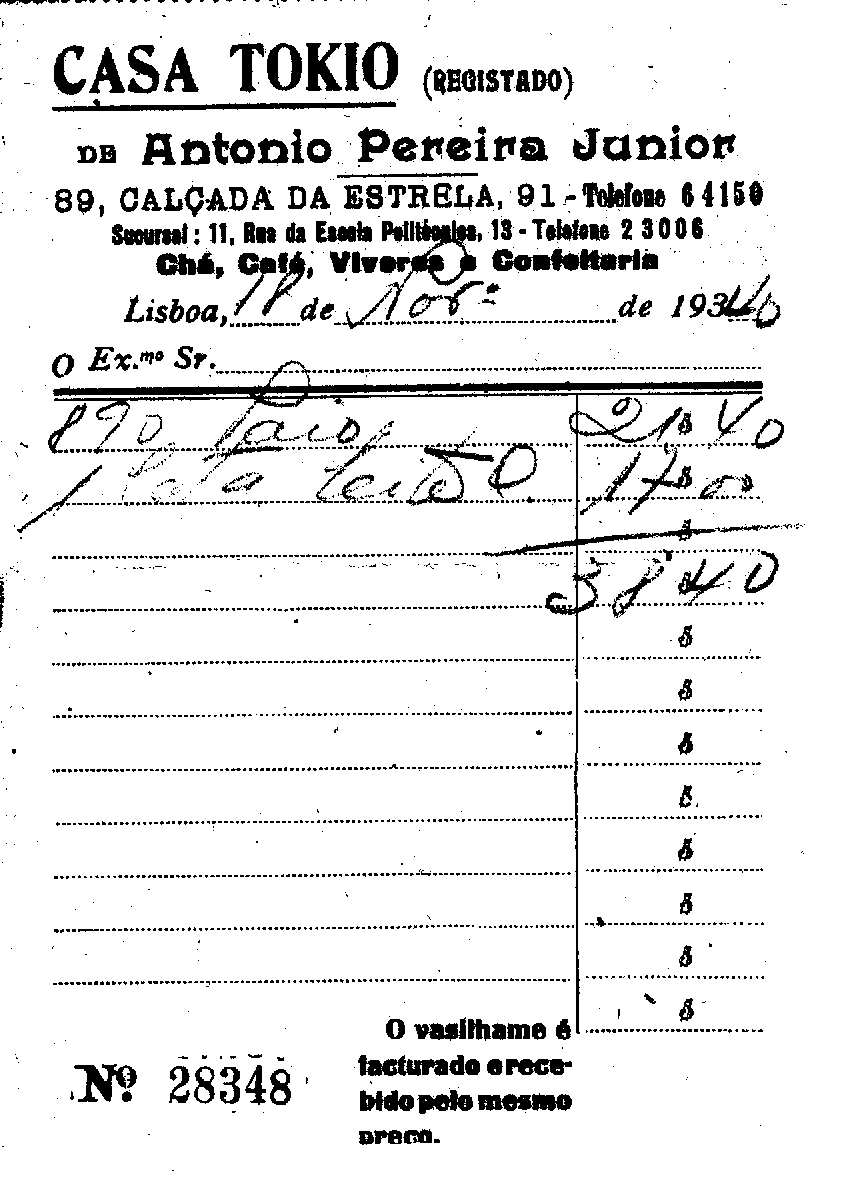 CASA TOKIO (REGISTADO)
DE Antonio Pereira Junior
89, CALÇADA DA ESTRELA, 91 - Telefone 64150
Sucursal : 11, Rua da Escola Politécnica, 13 - Telefone 2 3006
Chá, Café, Viveres e Confeitaria
Lisboa, 18 de Nov.º de 1940
O Ex.mo Sr.
890 Paio 21$40
1 Lata Leite 17$00
$
38$40
$
$
$
$
$
$
$
$
O vasilhame é
facturado e rece-
bido pelo mesmo
preço.
Nº 28348